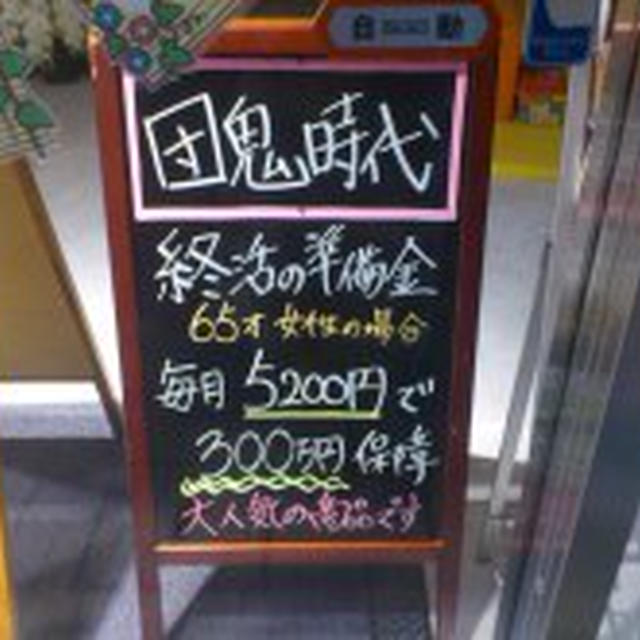 自動
団鬼時代
終活の準備金
65才女性の場合
毎月5200円で
300万円保障
大人気の商品です